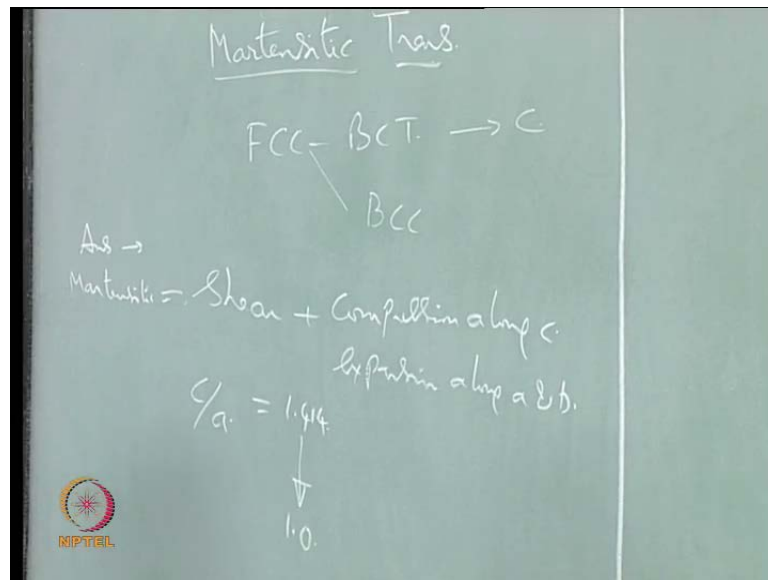 Martensitic Trans.
FCC - BCT. → C.
BCC
Ans →
Martensitic = Shear + Compression along c.
expansion along a & b.
c/a. = 1.414
1.0.
NPTEL